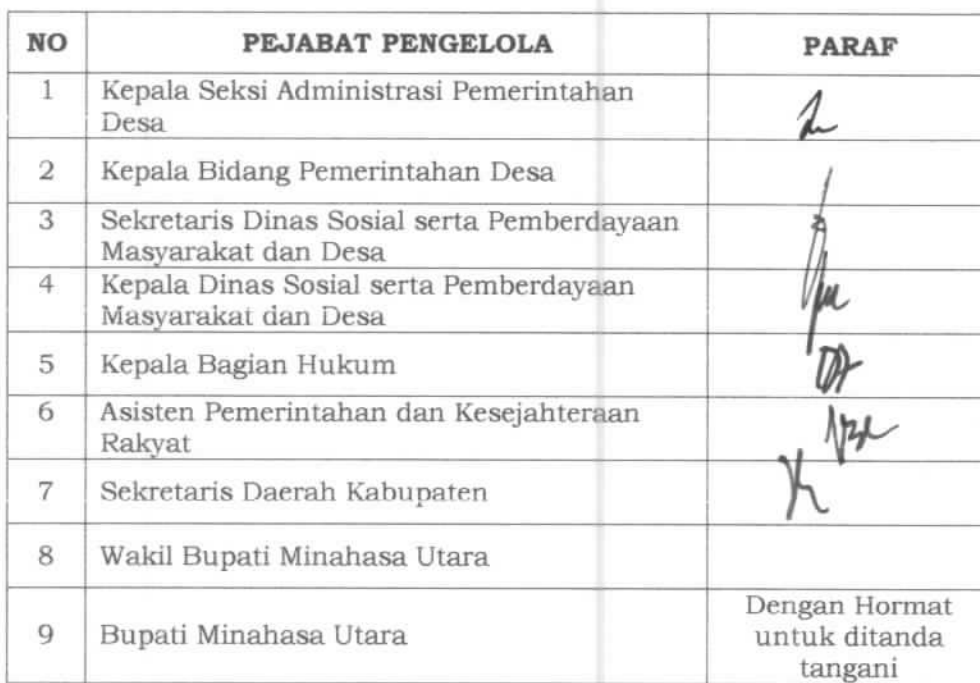 NO PEJABAT PENGELOLA PARAF
1 Kepala Seksi Administrasi Pemerintahan
Desa
2 Kepala Bidang Pemerintahan Desa
3 Sekretaris Dinas Sosial serta Pemberdayaan
Masyarakat dan Desa
4 Kepala Dinas Sosial serta Pemberdayaan
Masyarakat dan Desa
5 Kepala Bagian Hukum
6 Asisten Pemerintahan dan Kesejahteraan
Rakyat
7 Sekretaris Daerah Kabupaten
8 Wakil Bupati Minahasa Utara
9 Bupati Minahasa Utara
Dengan Hormat
untuk ditanda
tangani